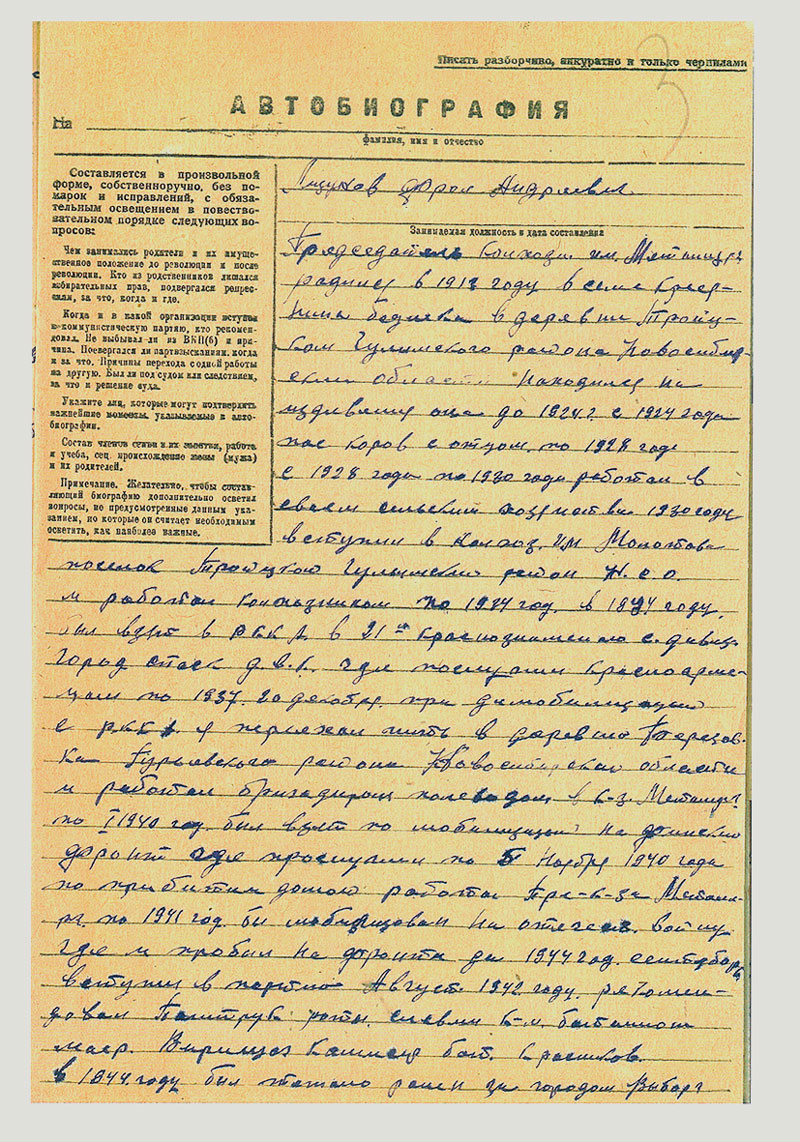 Писать разборчиво, аккуратно и только чернилами
3
АВТОБИОГРАФИЯ
На
фамилия, имя и отчество
Составляется в произвольной
форме, собственноручно, без по-
марок и исправлений, с обяза-
тельным освещением в повество-
вательном порядке следующих во-
просов:
Чем занимались родители и их имуще-
ственное положение до революции и после
революции. Кто из родственников лишался
избирательных прав, подвергался репрес-
сиям, за что, когда и где.
Когда и в какой организации вступил
в коммунистическую партию, кто рекомен-
довал. Не выбывал ли из ВКП(б) и при-
чина. Подвергался ли партвзысканиям, когда
и за что. Причины перехода с одной работы
на другую. Был ли под судом или следствием,
за что и решение суда.
Укажите лиц, которые могут подтвердить
важнейшие моменты, указываемые в авто-
биографии.
Состав членов семьи и их занятия, работа
и учеба, соц. происхождение жены (мужа)
и их родителей.
Примечание. Желательно, чтобы состав-
ляющий биографию дополнительно осветил
вопросы, не предусмотренные данным ука-
занием, но которые он считает необходимым
осветить, как наиболее важные.
Фрол Андреевич
Занимаемая должность и дата составления
Председатель колхоза им.
родился в 1912 году в семе крест-
нина бедняка в деревни Тройц-
ком Чулымского района Новосибир-
ской области находился на
иждивении отца до 1924 г. с 1924 года
пас коров с отцом по 1928 год
с 1928 года по 1930 года работал в
своем сельском хозяйстве 1930 году
вступил в колхоз им Молотова
поселок Тройцкой Чулымский район Н.С.О.
и работал колхозником по 1934 год. в 1934 году.
был взят в РККА в 21ю Краснознаменою с. дивиз.
город Спаск Д.В.К. где послужил красноарме-
йцам по 1937. 20 декабря при димобилизации
с РККА я переехал жить в деревню
Гурьевского района Новосибирской области
и работал бригадиром полеводом в к-з.
по I 1940 год. был взят по мобилизации на финский
фронт где прослужил по 5 Ноября 1940 года
по прибытии домою работал Пре-к-за
по 1941 год. был мобилизован на отечес. войну.
где и пробыл на фронте до 1944 год. сентябрь
вступил в партию Август 1942 году. рекомен-
довал Политрук роты к-р. батальона
маер. бат. Красиков.
в 1944 году был тяжало ранен за городом Выборг